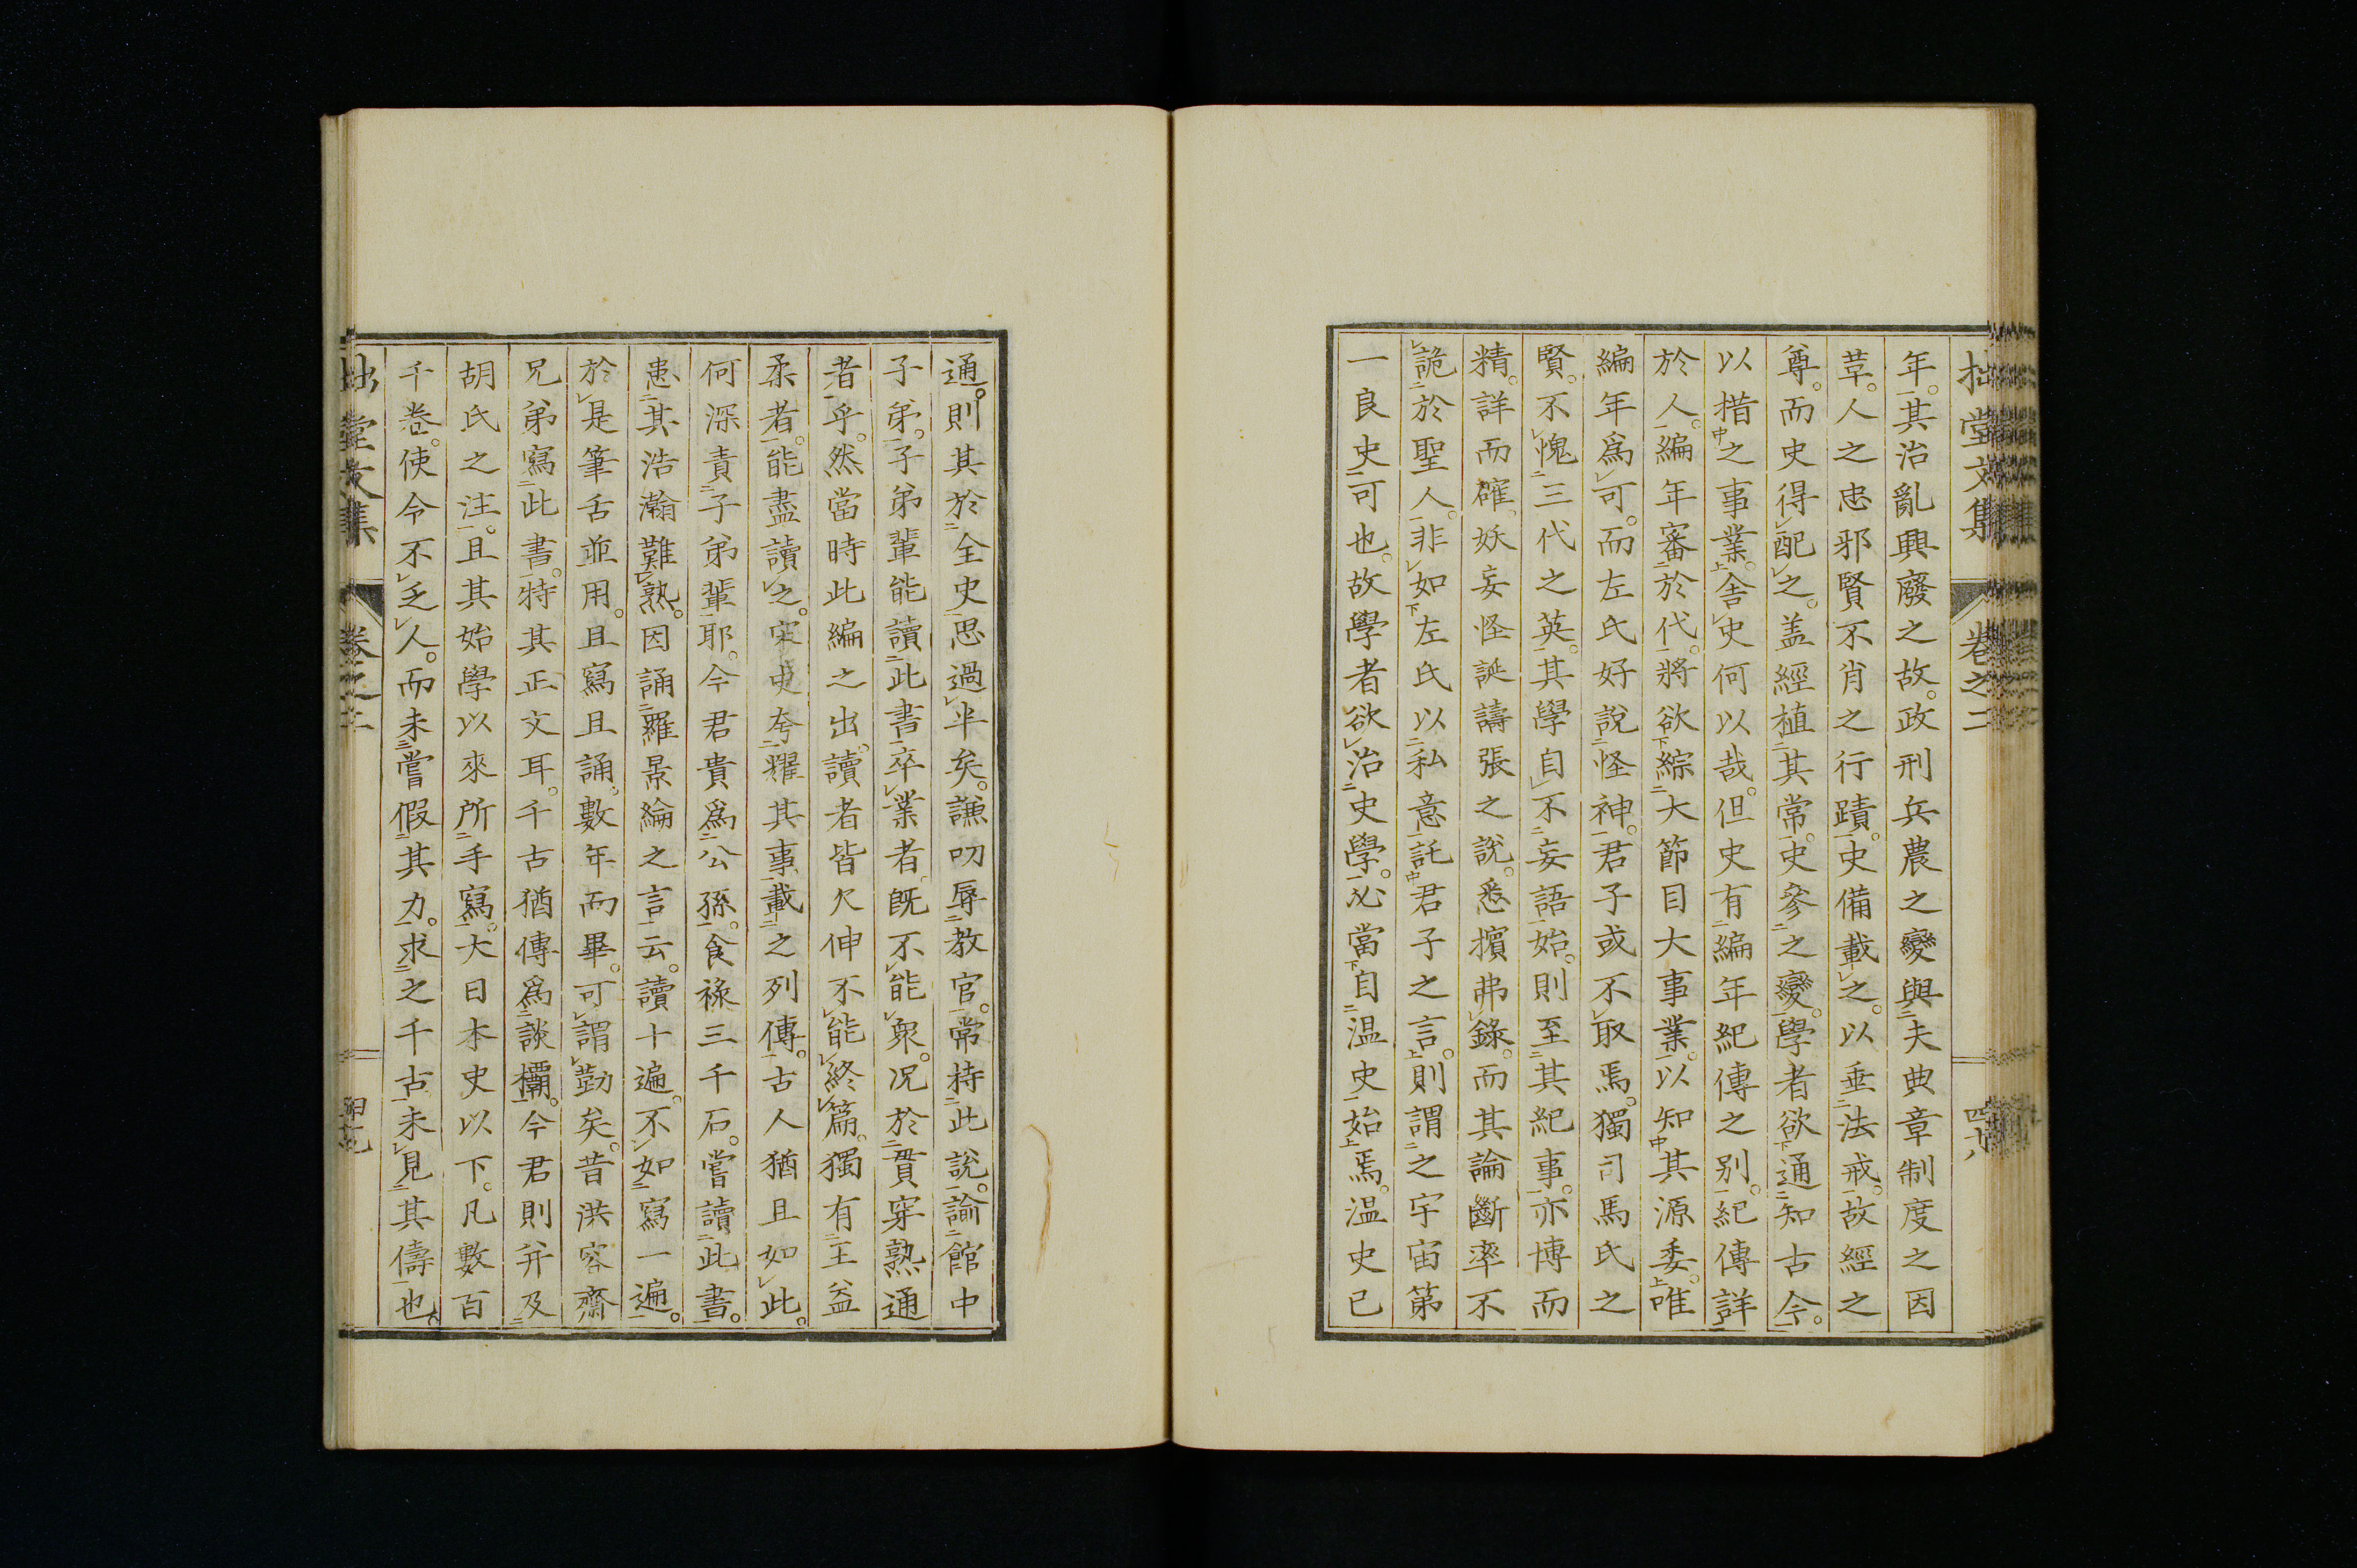 拙堂文集 卷之二 四十八
年。其治亂興廢之故。政刑兵農之變與夫典章制度之因
革。人之忠邪賢不肖之行蹟。史備載之。以垂法戒。故經之
尊。而史得配之。盖經植其常。史參之變。學者欲通知古今。
以措之事業。舍史何以哉。但史有編年紀傳之別。紀傳詳
於人。編年審於代。將欲綜大節目大事業。以知其源委。唯
編年爲可。而左氏好說怪神。君子或不取焉。獨司馬氏之
賢。不愧三代之英。其學自不妄語始。則至其紀事。亦博而
精。詳而確。妖妄怪誕譸張之說。悉擯弗錄。而其論斷率不
詭於聖人。非如左氏以私意託君子之言。則謂之宇宙第
一良史可也。故學者欲治史學。必當自温史始焉。温史已
通。則其於全史思過半矣。謙叨辱教官。常持此說。諭館中
子弟。子弟輩能讀此書卒業者。既不能衆。况於貫穿熟通
者乎。然當時此編之出。讀者皆欠伸不能終篇。獨有王益
柔者。能盡讀之。宋史夸耀其事。載之列傳。古人猶且如此。
何深責子弟輩耶。今君貴爲公孫。食祿三千石。嘗讀此書。
患其浩瀚難熟。因誦羅景綸之言云。讀十遍。不如寫一遍。
於是筆舌並用。且寫且誦。數年而畢。可謂勤矣。昔洪容齋
兄弟寫此書。特其正文耳。千古猶傳爲談欛。今君則并及
胡氏之注。且其始學以來所手寫。大日本史以下。凡數百
千卷。使令不乏人。而未嘗假其力。求之千古。未見其儔也。
拙堂文集 卷之二